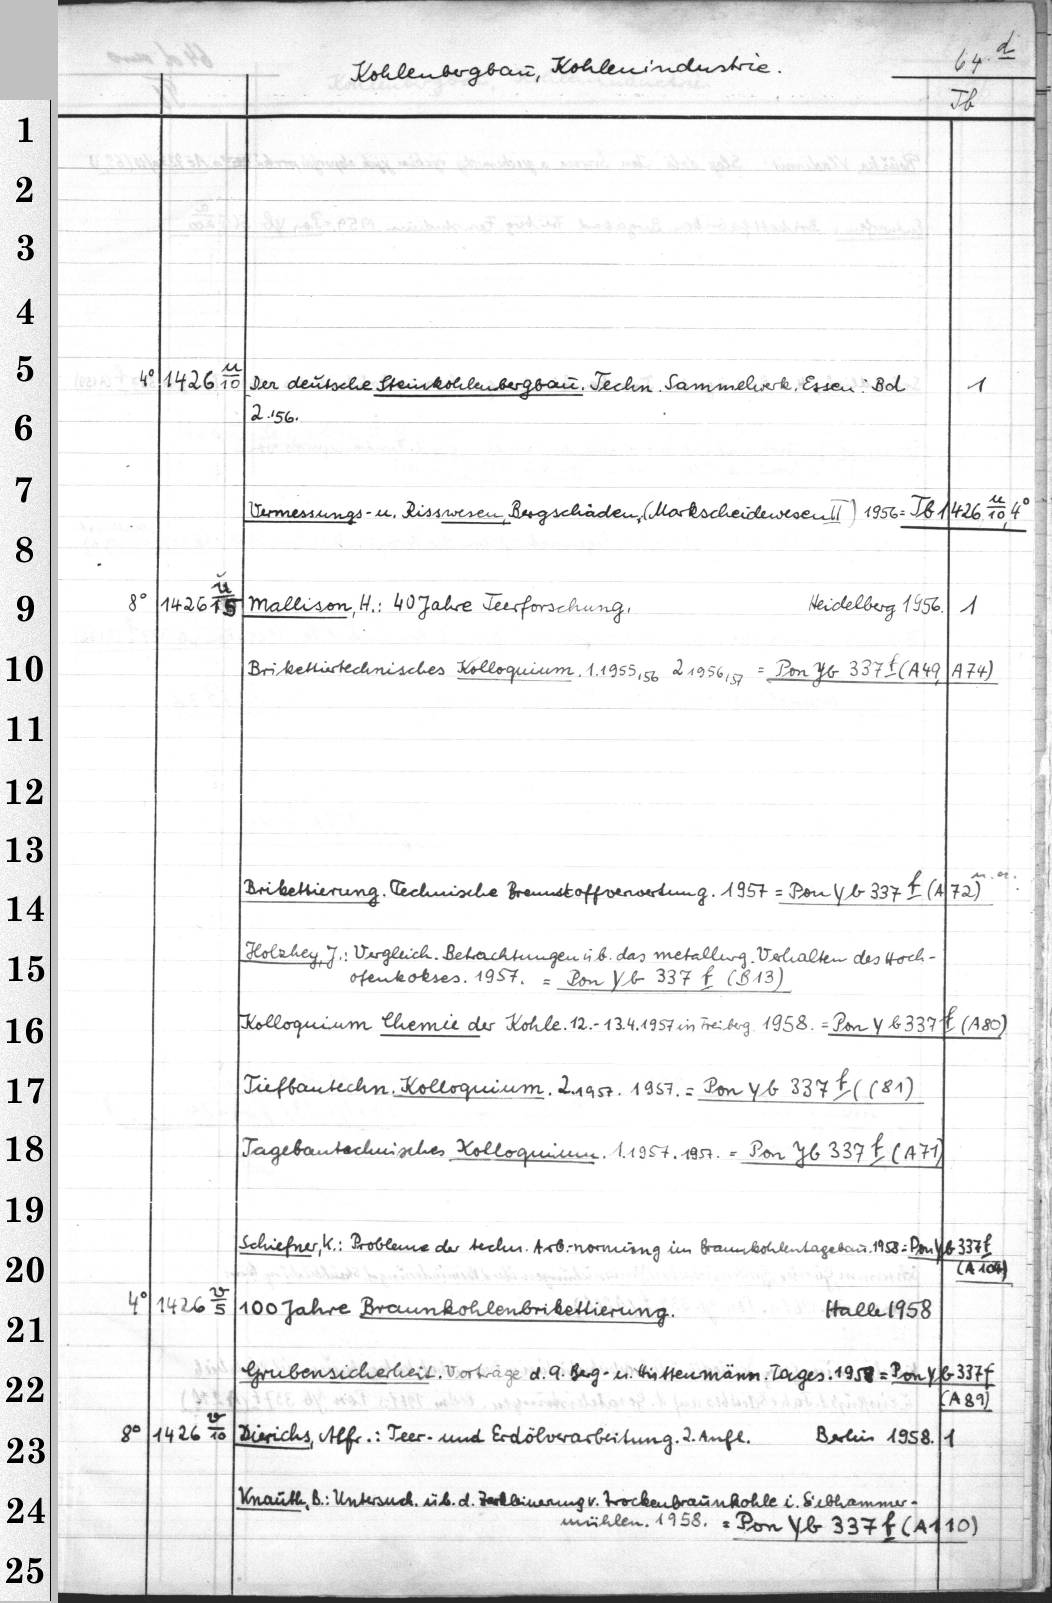 Kohlenbergbau, Kohlenindustrie.
64. d
Tb
1
2
3
4
5
4° 1426 u/10 Der deutsche Steinkohlenbergbau. Techn. Sammelwerk. Essen: Bd 1
6
2.'56.
7
Vermessungs- u. Risswesen, Bergschäden, (Markscheidewesen II) 1956 = Tb 1426 u/10, 4°
8
9
8° 1426 u/15 Mallison, H.: 40 Jahre Teerforschung. Heidelberg 1956. 1
10
Brikettiertechnisches Kolloquium. 1.1955,56 2 1956,57 = Pon Yb 337 f (A49, A74)
11
12
13
14
Brikettierung. Technische Brennstoffverwertung. 1957 = Pon Yb 337 f (A 72) u. a.
15
Holzhey, J.: Vergleich. Betrachtungen üb. das metallurg. Verhalten des Hoch-
ofenkokses. 1957. = Pon Yb 337 f (B13)
16
Kolloquium Chemie der Kohle. 12.-13.4.1957 in Freiberg. 1958. = Pon Yb 337 f (A80)
17
Tiefbautechn. Kolloquium. 2.1957. 1957. = Pon Yb 337 f ( (81)
18
Tagebautechnisches Kolloquium. 1.1957. 1957. = Pon Yb 337 f (A71)
19
Schiefner, K.: Probleme der techn. Arb.-normung im Braunkohlentagebau. 1958 = Pon Yb 337 f
20
(A 104)
4° 1426 v/5 100 Jahre Braunkohlenbrikettierung. Halle 1958
21
Grubensicherheit. Vorträge d. 9. Berg- u. Hüttenmänn. Tages. 1958 = Pon Yb 337 f
22
(A89)
8° 1426 v/10 Dierichs, Alfr.: Teer- und Erdölverarbeitung. 2. Aufl. Berlin 1958. 1
23
24
Knauth, B.: Untersuch. üb. d. Zerkleinerung v. Trockenbraunkohle i. Siebhammer-
mühlen. 1958. = Pon Yb 337 f (A110)
25